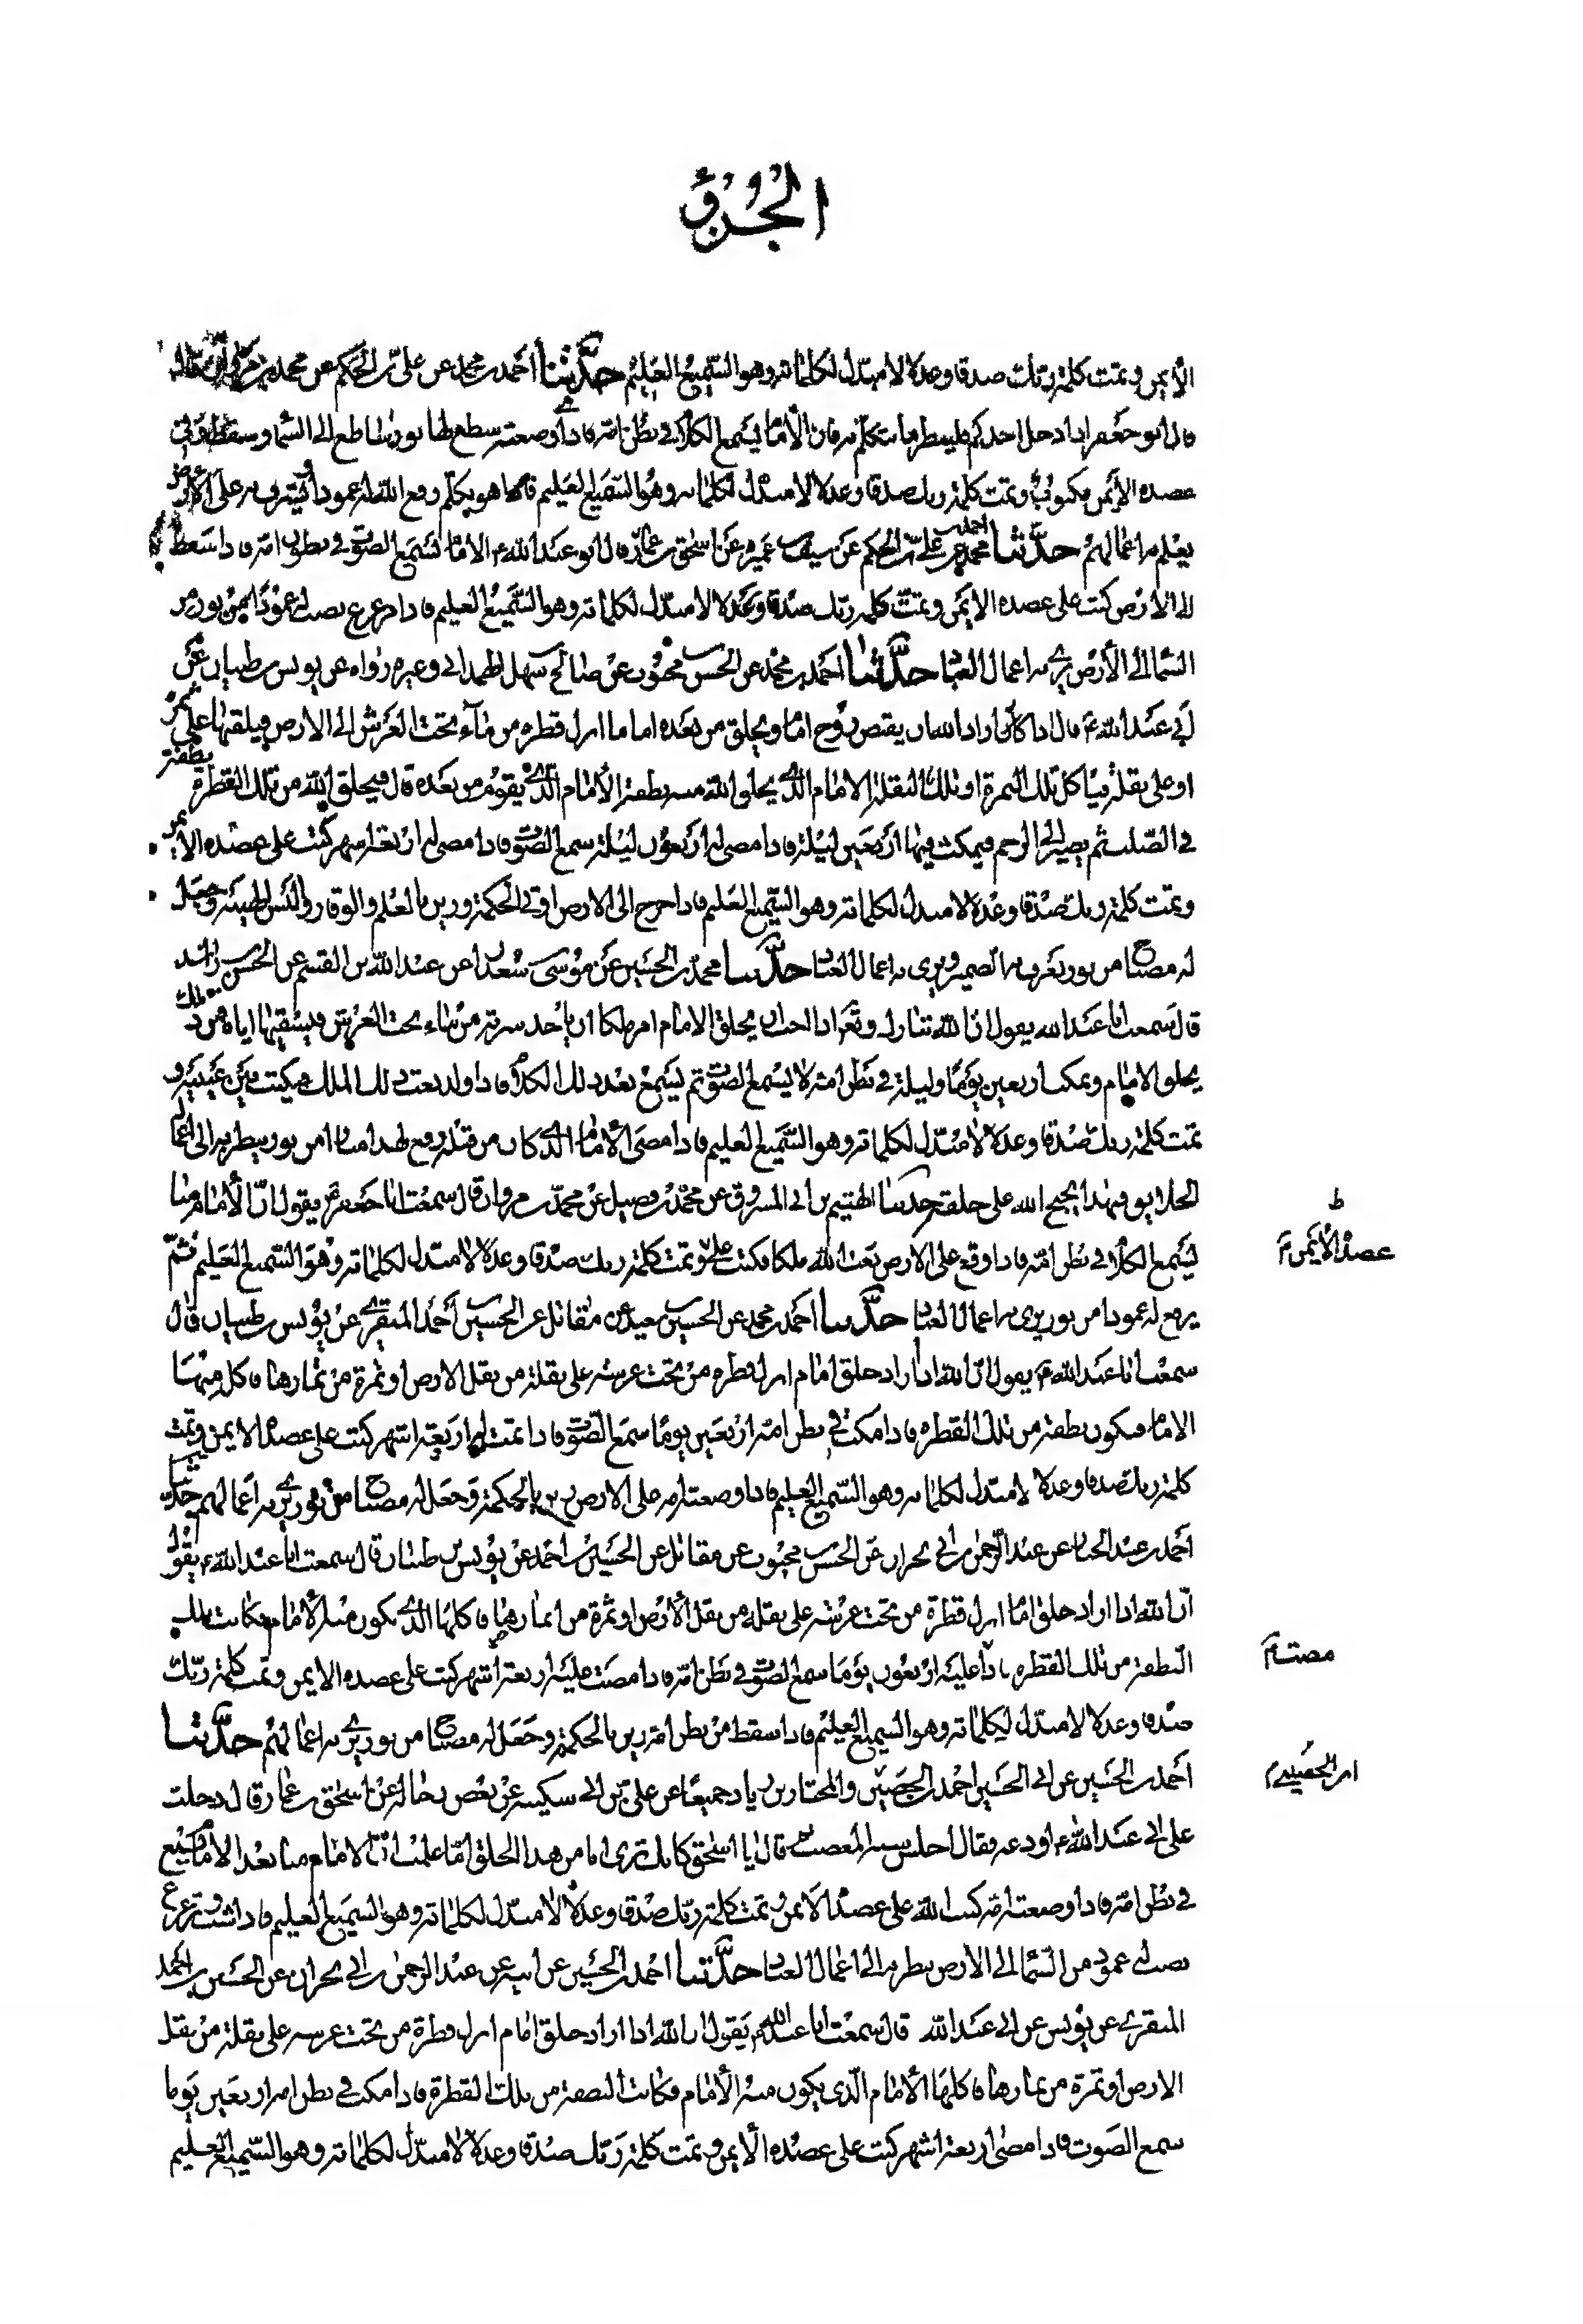 الجزؤ
الأيمن وتمت كلمة ربك صدقا وعدلا لا مبدل لكلماته وهو السميع العليم حدّثنا أحمد بن محمد عن علي بن الحكم عن محمد بن
قال ابو جعفر اذا دخل احدكم فلينظر ما يتكلم به فان الأمام يسمع الكلام في بطن امه فاذا وضعته سطع لها نور ساطع الى السماء وسقط وفي
عضده الايمن مكتوب وتمت كلمة ربك صدقا وعدلا لا مبدل لكلماته وهو السميع العليم فاذا هو تكلم رفع الله له عمودا يشرف به على الارض
يعلم به اعمالهم حدّثنا احمد بن محمد عن علي بن الحكم عن سيف بن عميره عن اسحق بن عمار قال قال ابو عبد الله ع الامام يسمع الصوت في بطن امه فاذا سقط
الى الارض كتب على عضده الايمن وتمت كلمة ربك صدقا وعدلا لا مبدل لكلماته وهو السميع العليم فاذا ترعرع نصب له عمودا من نور من
السماء الى الأرض يرى به اعمال العباد حدّثنا احمد بن محمد عن الحسن بن محبوب عن صالح بن سهل الهمداني وغيره رواه عن يونس بن ظبيان عن
أبي عبد الله ع قال اذا اراد الله ان يقبض روح امام ويخلق من بعده اماما انزل قطره من ماء تحت العرش الى الارض فيلقيها على ثمرة
او على بقلة فيأكل تلك الثمرة او تلك البقلة الامام الذي يخلق الله منه نطفة الأمام الذي يقوم من بعده قال فيخلق الله من تلك القطرة نطفة
في الصلب ثم يصير الى الرحم فيمكث فيها اربعين ليلة فاذا مضى له اربعون ليلة سمع الصوت فاذا مضى له اربعة اشهر كتب على عضده الايمن
وتمت كلمة ربك صدقا وعدلا لا مبدل لكلماته وهو السميع العليم فاذا خرج الى الارض اوتي الحكمة وزين بالعلم والوقار والبس الهيبة وجعل
له مصباح من نور يعرف به الضمير ويرى به اعمال العباد حدّثنا محمد بن الحسين عن موسى بن سعدان عن عبد الله بن القسم عن الحسن بن راشد
قال سمعت ابا عبد الله يقول ان الله تبارك وتعالى اذا احب ان يخلق الامام امر ملكا ان ياخذ شربة من ماء تحت العرش فيسقيها اياه فمن ذلك
يخلق الامام ويمكث اربعين يوما وليلة في بطن امه لا يسمع الصوت ثم يسمع بعد ذلك الكلام فاذا ولد بعث ذلك الملك فيكتب بين عينيه و
تمت كلمة ربك صدقا وعدلا لا مبدل لكلماته وهو السميع العليم فاذا مضى الأمام الذي كان من قبله رفع لهذا منارا من نور ينظر به الى اعمال
الخلايق فبهذا يحتج الله على خلقه حدثنا الهيثم بن ابي المسروق عن محمد بن فضيل عن محمد بن مروان قال سمعت ابا جعفر ع يقول ان الأمام منا
ليسمع الكلام في بطن امه فاذا وقع على الارض بعث الله ملكا فكتب على وتمت كلمة ربك صدقا وعدلا لا مبدل لكلماته وهو السميع العليم ثم
يرفع له عمودا من نور يرى به اعمال العباد حدّثنا احمد بن محمد عن الحسين بن سعيد عن مقاتل عن الحسين بن أحمد المنقري عن يونس بن ظبيان قال
سمعت ابا عبد الله ع يقول ان الله اذا اراد خلق امام انزل قطرة من تحت عرشه على بقلة من بقل الارض او ثمرة من ثمارها فاكل منها
الامام فيكون نطفة من تلك القطره فاذا مكث في بطن امه اربعين يوما سمع الصوت فاذا تمت له اربعة اشهر كتب على عضده الايمن وتمت
كلمة ربك صدقا وعدلا لا مبدل لكلماته وهو السميع العليم فاذا وضعته امه على الارض زين بالحكمة وجعل له مصباح من نور يرى به اعمالهم حدثنا
احمد بن عبد الجبار عن عبد الرحمن بن ابي نجران عن الحسن بن محبوب عن مقاتل عن الحسين بن احمد عن يونس بن ظبيان قال سمعت ابا عبد الله ع يقول
ان الله اذا اراد خلق امام انزل قطرة من تحت عرشه على بقلة من بقل الأرض او ثمرة من اثمارها فاكلها الذي يكون منه الأمام فكانت تلك
النطفة من تلك القطره فاذا عليه اربعون يوما سمع الصوت في بطن امه فاذا مضت عليه اربعة اشهر كتب على عضده الايمن وتمت كلمة ربك
صدقا وعدلا لا مبدل لكلماته وهو السميع العليم فاذا سقط من بطن امه زين بالحكمة وجعل له مصباح من نور يرى به اعمالهم حدّثنا
احمد بن الحسين عن ابي الحسين احمد بن الحصين والمختار بن زياد جميعا عن علي بن ابي سكينه عن بعض رجاله عن اسحق بن عمار قال دخلت
على ابي عبد الله ع اودعه فقال اجلس شبه المغضب ثم قال يا اسحق كانك ترى انا من هذا الخلق اما علمت ان الامام منا بعد الامام يسمع
في بطن امه فاذا وضعته امه كتب الله على عضده الايمن وتمت كلمة ربك صدقا وعدلا لا مبدل لكلماته وهو السميع العليم فاذا شب وترعرع
نصب له عمود من السماء الى الارض ينظر به الى اعمال العباد حدّثنا احمد بن الحسين عن ابيه عن عبد الرحمن بن ابي نجران عن الحسين بن احمد
المنقري عن يونس عن ابي عبد الله قال سمعت ابا عبد الله ع يقول ان الله اذا اراد خلق امام انزل قطرة من تحت عرشه على بقلة من بقل
الارض او ثمرة من ثمارها فاكلها الامام الذي يكون منه الأمام فكانت النطفة من تلك القطرة فاذا مكث في بطن امه اربعين يوما
سمع الصوت فاذا مضى اربعة اشهر كتب على عضده الايمن وتمت كلمة ربك صدقا وعدلا لا مبدل لكلماته وهو السميع العليم
ط
عضده الأيمن م
مضت م
ابن الحصين م